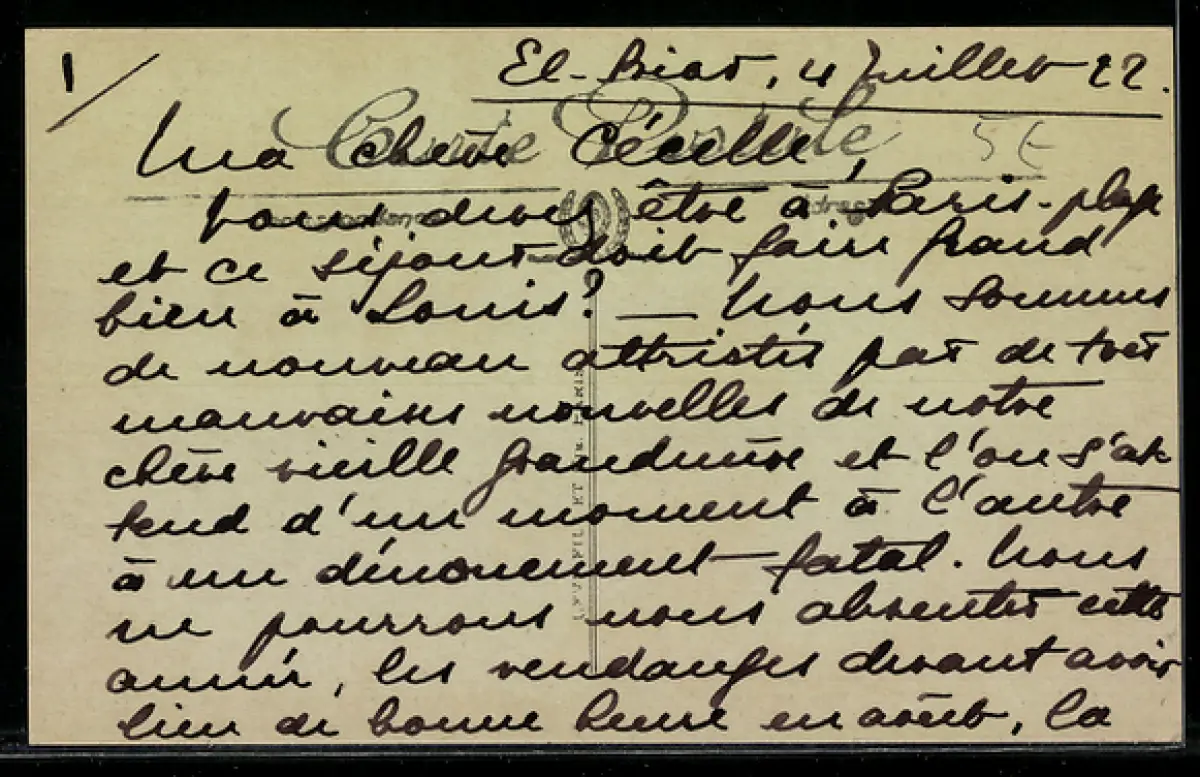 1/
El-Biar, 4 Juillet 22.
Carte Postale
5€
Ma chère Cécelle,
Vous devez être à Paris-plage
et ce séjour doit faire grand
bien à Louis? — Nous sommes
de nouveau attristés par de très
mauvaises nouvelles de notre
chère vieille grandmère et l'on s'at-
tend d'un moment à l'autre
à un dénouement fatal. Nous
ne pourrons nous absenter cette
année, les vendanges devant avoir
lieu de bonne heure en août, la